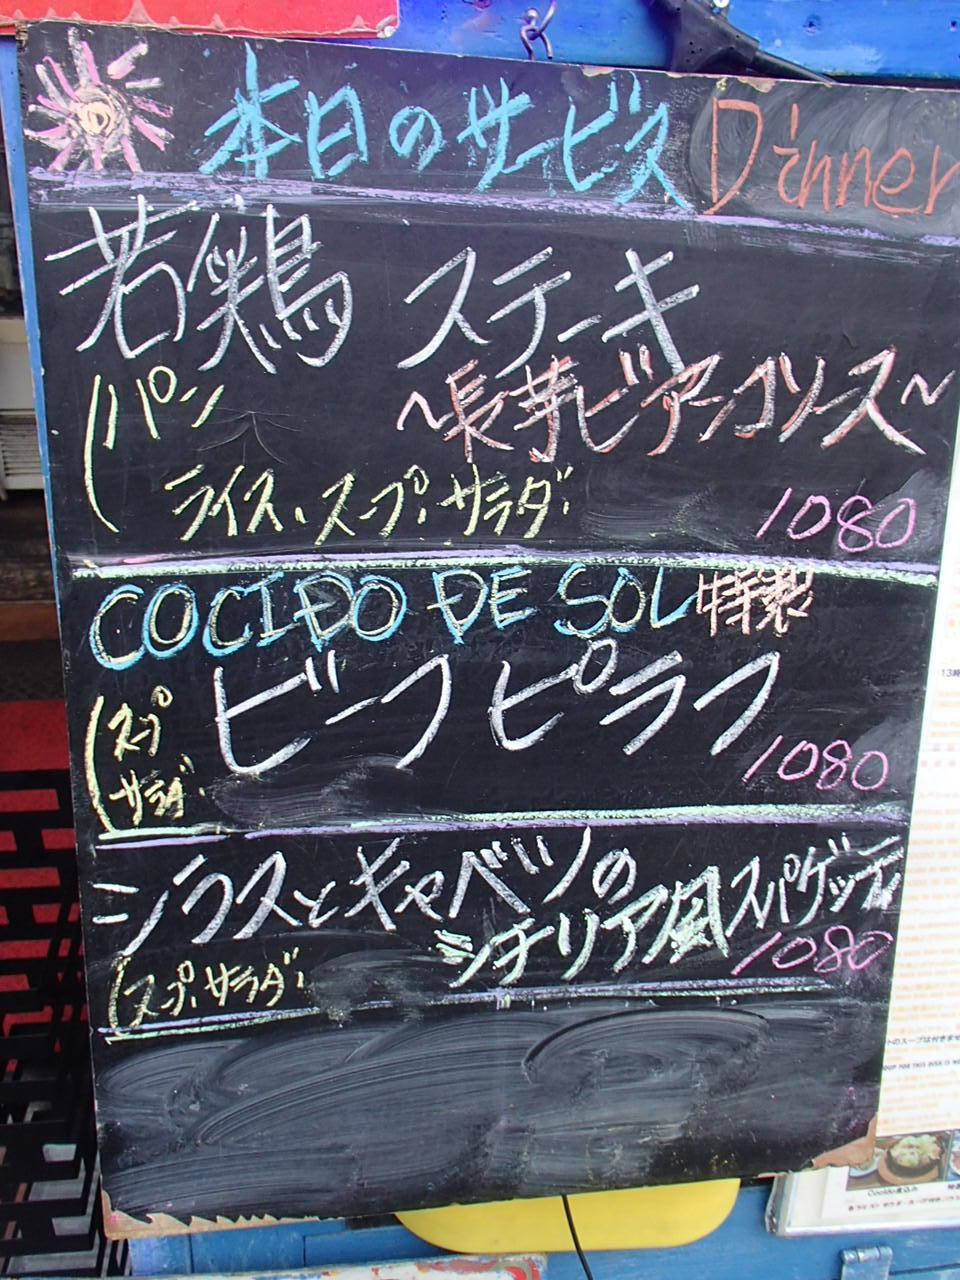 本日のサービス Dinner
若鶏 ステーキ
～長芋ビアンコソース～
パン
ライス・スープ・サラダ
1080
COCIDO DE SOL 特製
ビーフピラフ
スープ
サラダ
1080
シラスとキャベツの
シチリア風スパゲッティ
スープ・サラダ
1080
13時